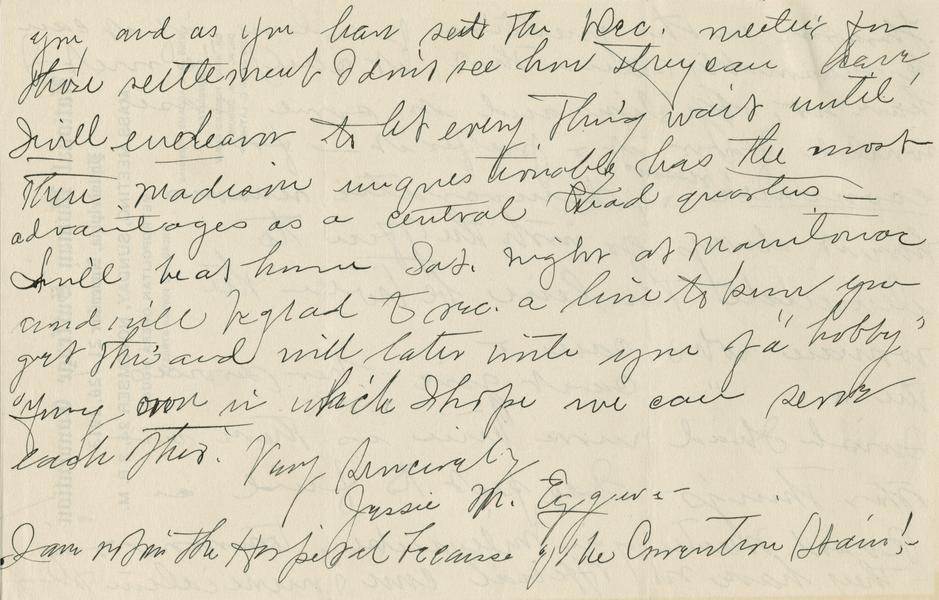 you, and as you have set the Dec. meeting for
those settlement I don't see how they can leave,
I will endeavor to let every thing wait until
then. Madison unquestionably has the most
advantages as a central head quarters —
I will be at home Sat. night at Manitowoc
and will be glad to rec. a line to know you
get this and will later write you of a "hobby"
of my own in which I hope we can serve
each other. Very Sincerely
Jessie M. Eggers -
I am not in the Hospital because of the Convention Strain! -